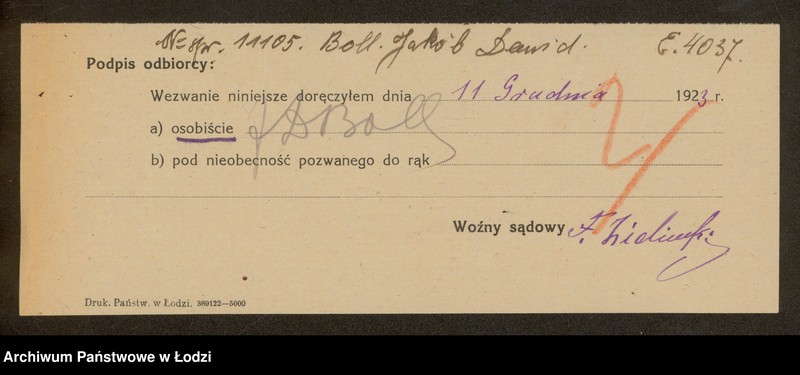 No spr. 11105. Boll. Jakób Dawid. E.4037.
Podpis odbiorcy:
Wezwanie niniejsze doręczyłem dnia 11 Grudnia 1923 r.
a) osobiście JDBoll
b) pod nieobecność pozwanego do rąk
Woźny sądowy F. Zieliński
Druk. Państw. w Łodzi. 369122—5000
Archiwum Państwowe w Łodzi